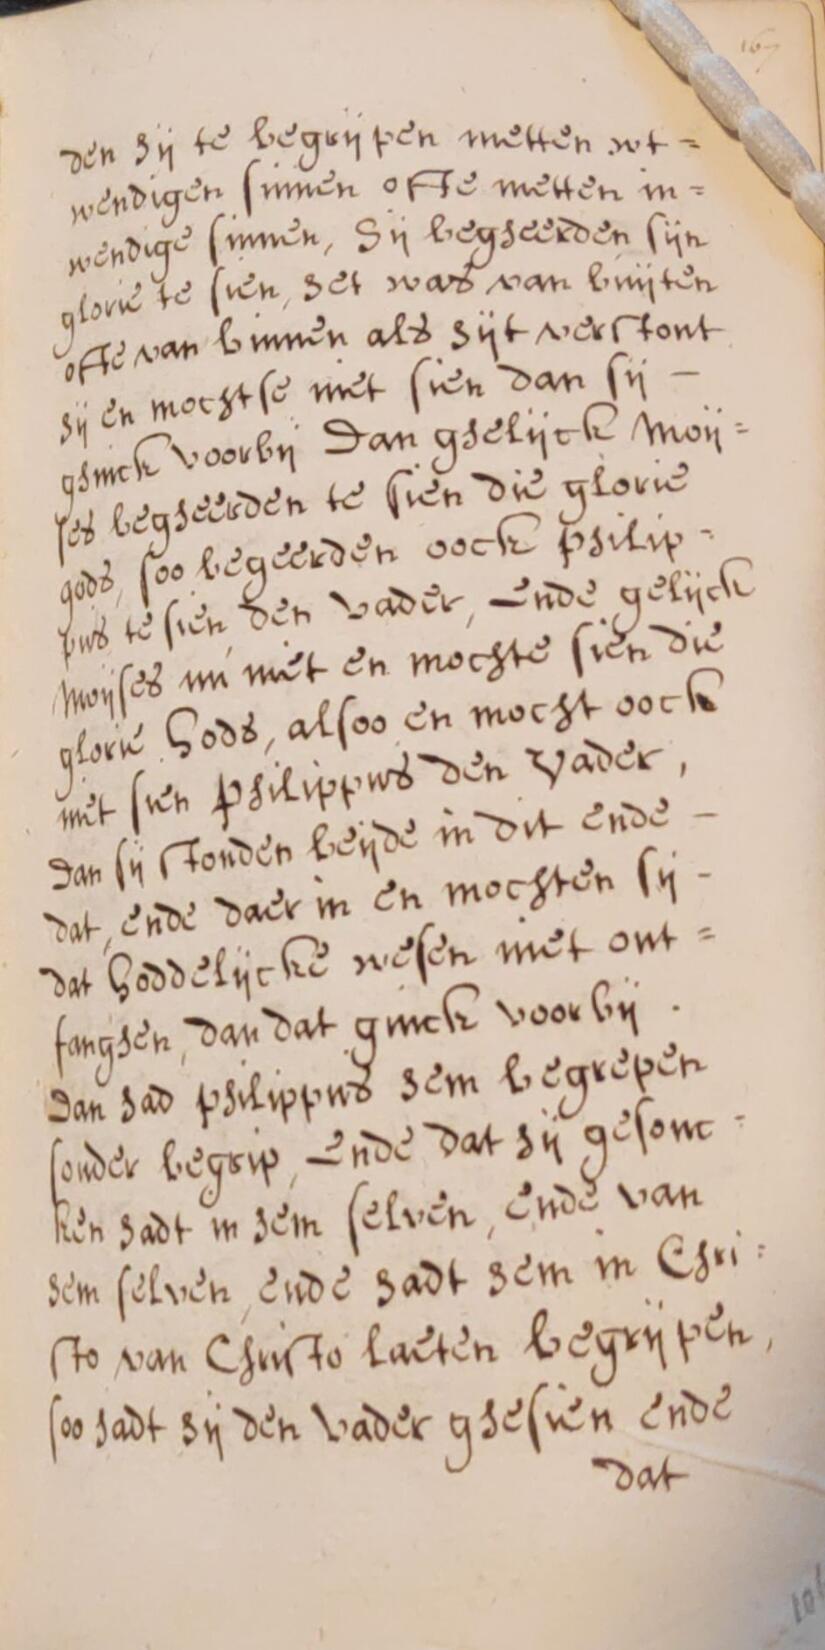 167
den hij te begrijpen metten wt=
wendigen sinnen ofte metten in=
wendige sinnen, hij begheerden sijn
glorie te sien, het was van buijten
ofte van binnen als hijt verstont
hij en mochtse niet sien dan sij —
ghinck voorbij Dan ghelijck Moij=
ses begheerden te sien die glorie
gods, soo begeerden oock philip=
pus te sien den vader, ende gelijck
Moijses nu niet en mochte sien die
glorie Gods, alsoo en mocht oock
niet sien philippus den Vader,
Dan sij stonden beijde in dit ende —
dat, ende daer in en mochten sij -
dat Goddelijcke wesen niet ont=
fanghen, dan dat ginck voorbij .
Dan had philippus hem begrepen
sonder begrip, ende dat hij gesonc=
ken hadt in hem selven, ende van
hem selven, ende hadt hem in Chri=
sto van Christo laeten begrijpen,
soo hadt hij den vader ghesien ende
dat